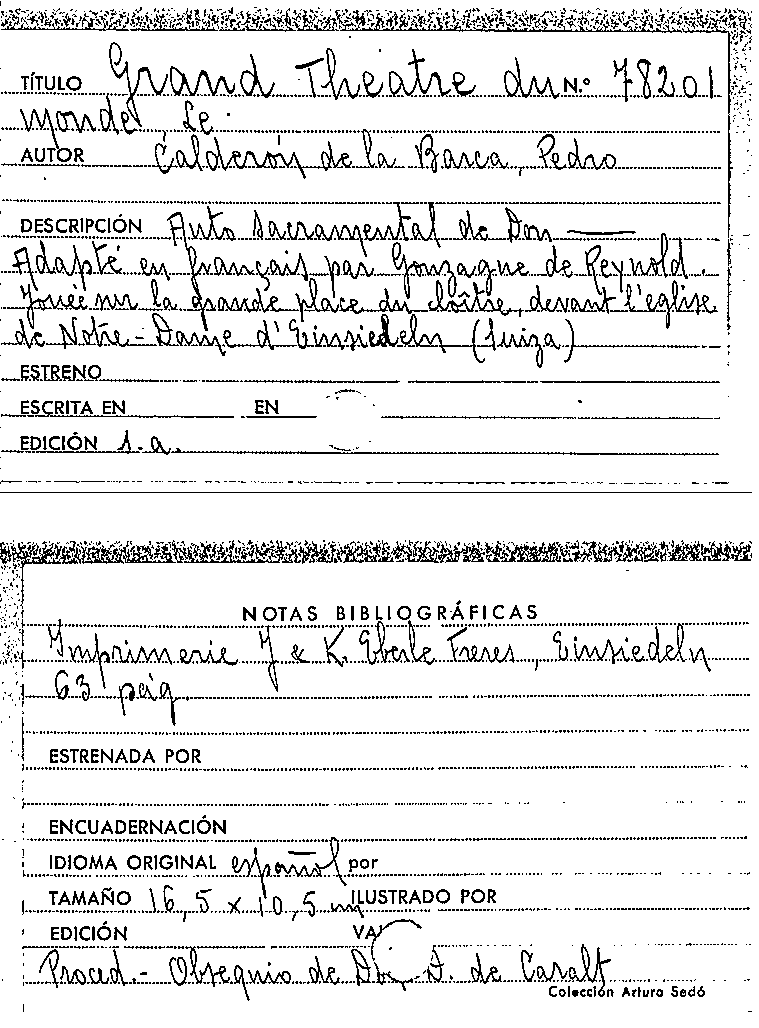 TÍTULO Grand Theâtre du N.º 78201
monde Le.
AUTOR Calderón de la Barca, Pedro
DESCRIPCIÓN Auto sacramental de Don ——
Adapté en français par Gonzague de Reynold.
Jouée sur la grande place du cloître, devant l'eglise
de Notre-Dame d'Einsiedeln (Suiza)
ESTRENO
ESCRITA EN EN
EDICIÓN s.a.
NOTAS BIBLIOGRÁFICAS
Imprimerie J & K. Eberle Freres, Einsiedeln
63 pág.
ESTRENADA POR
ENCUADERNACIÓN
IDIOMA ORIGINAL español por
TAMAÑO 16,5 x 10,5 ILUSTRADO POR
EDICIÓN
Proced.- Obsequio de D. de Caralt
Colección Arturo Sedó